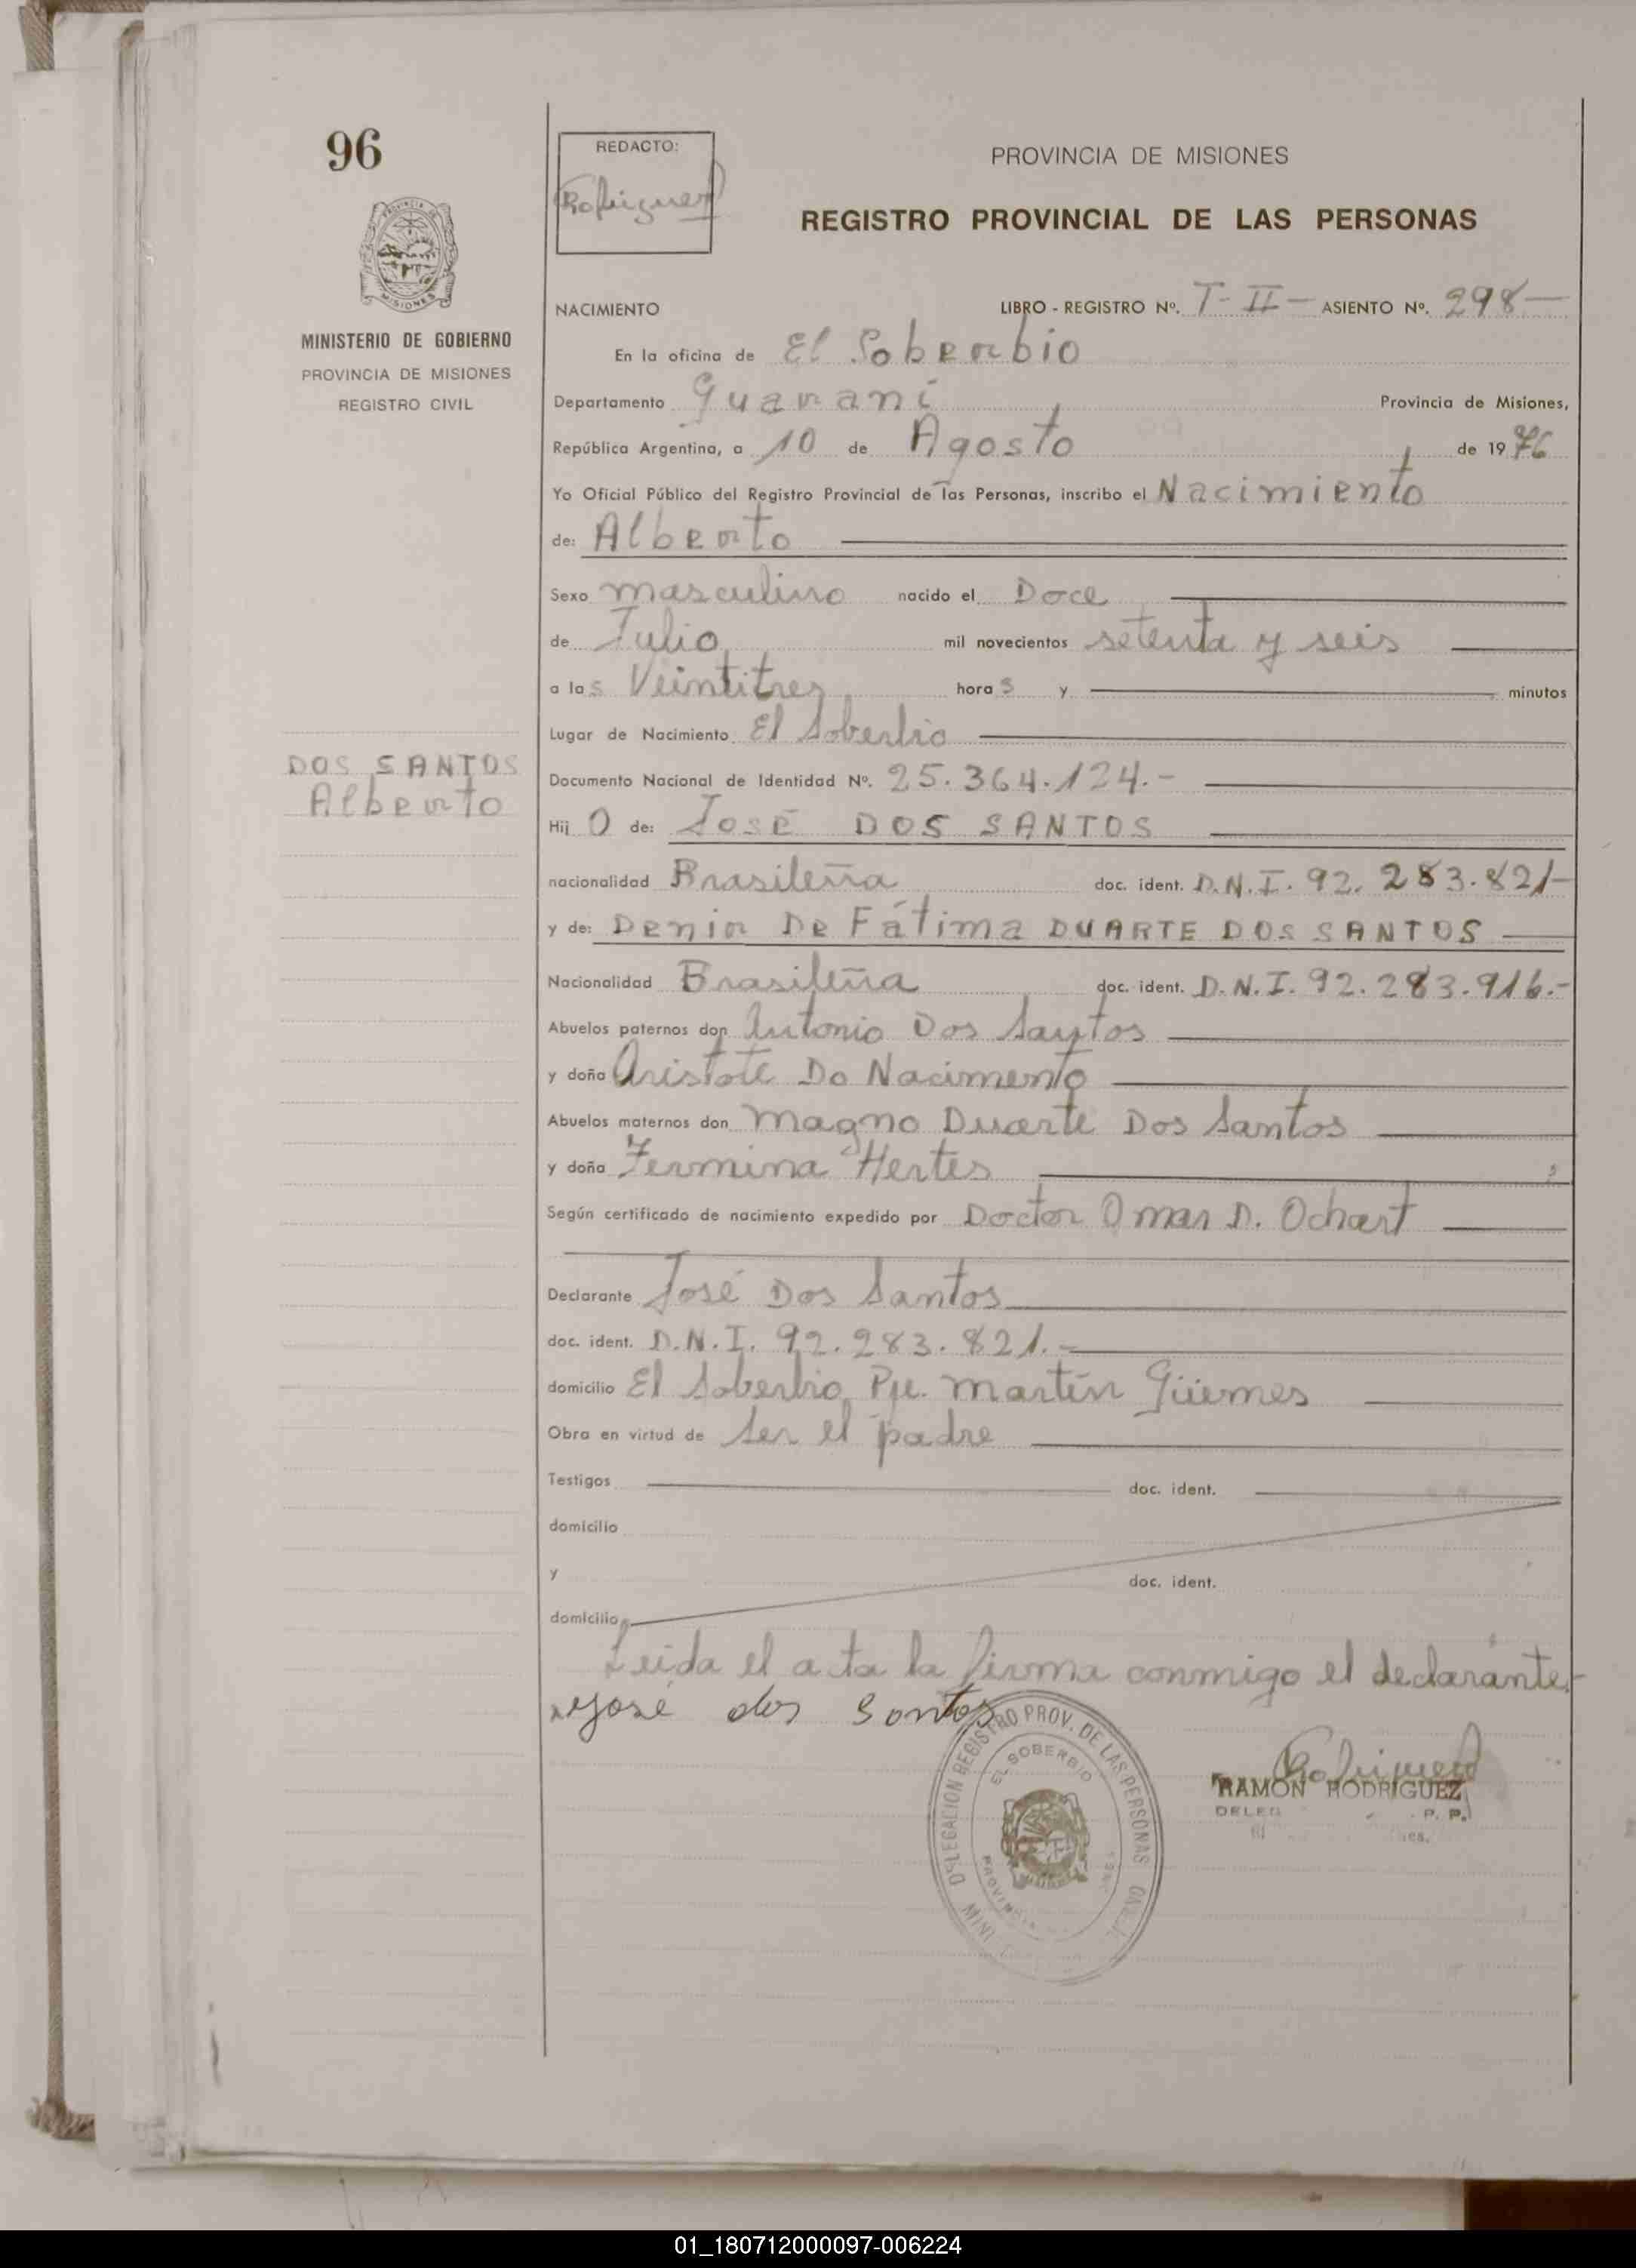 96
REDACTO:
Rodriguez
PROVINCIA DE MISIONES
REGISTRO PROVINCIAL DE LAS PERSONAS
MISIONES
MINISTERIO DE GOBIERNO
PROVINCIA DE MISIONES
REGISTRO CIVIL
NACIMIENTO LIBRO - REGISTRO Nº. T-II- ASIENTO Nº. 298-
En la oficina de El Soberbio
Departamento Guaraní Provincia de Misiones,
República Argentina, a 10 de Agosto de 1976
Yo Oficial Público del Registro Provincial de las Personas, inscribo el Nacimiento
de: Alberto
Sexo masculino nacido el Doce
de Julio mil novecientos setenta y seis
a las Veintitres horas y minutos
Lugar de Nacimiento El Soberbio
DOS SANTOS
Alberto
Documento Nacional de Identidad Nº. 25.364.124.-
Hijo de: José DOS SANTOS
nacionalidad Brasileña doc. ident. D.N.I. 92.283.821-
y de: Denir De Fátima DUARTE DOS SANTOS
Nacionalidad Brasileña doc. ident. D.N.I. 92.283.916.-
Abuelos paternos don Antonio Dos Santos
y doña Aristote Do Nacimento
Abuelos maternos don Magno Duarte Dos Santos
y doña Fermina Hertes
Según certificado de nacimiento expedido por Doctor Omar D. Ochart
Declarante José Dos Santos
doc. ident. D.N.I. 92.283.821.-
domicilio El Soberbio Pje. Martín Güemes
Obra en virtud de ser el padre
Testigos doc. ident.
domicilio
y doc. ident.
domicilio
Leida el acta la firma conmigo el declarante.-
José dos Santos
DELEGACION REGISTRO PROV. DE LAS PERSONAS
EL SOBERBIO
PROVINCIA
Rodriguez
RAMON RODRIGUEZ
01_180712000097-006224